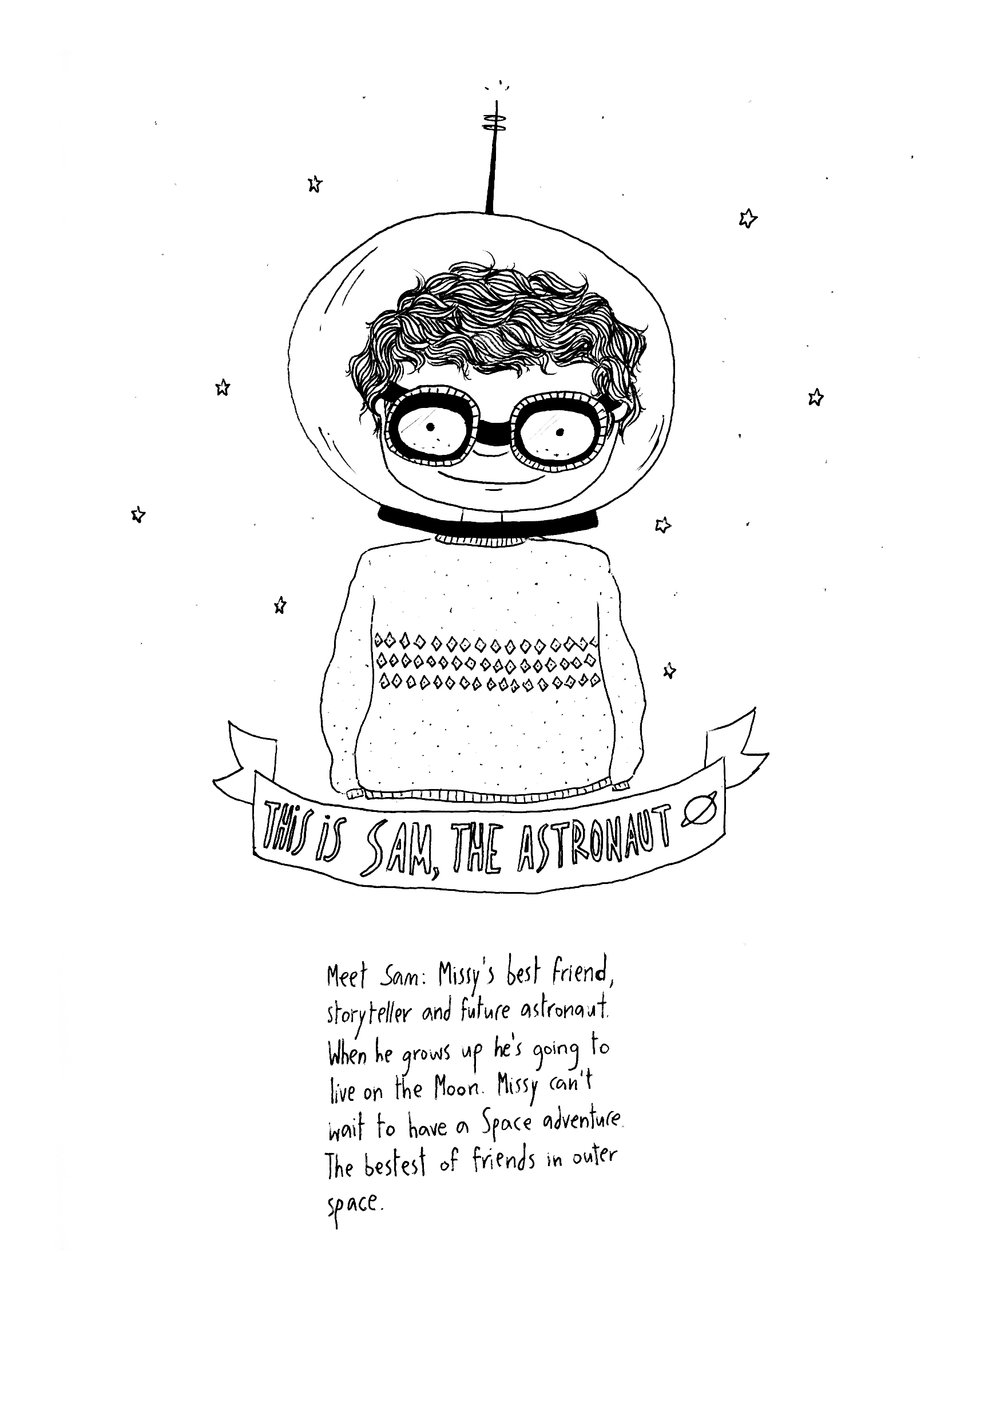 THIS IS SAM, THE ASTRONAUT
Meet Sam: Missy's best friend,
storyteller and future astronaut.
When he grows up he's going to
live on the Moon. Missy can't
wait to have a Space adventure.
The bestest of friends in outer
space.